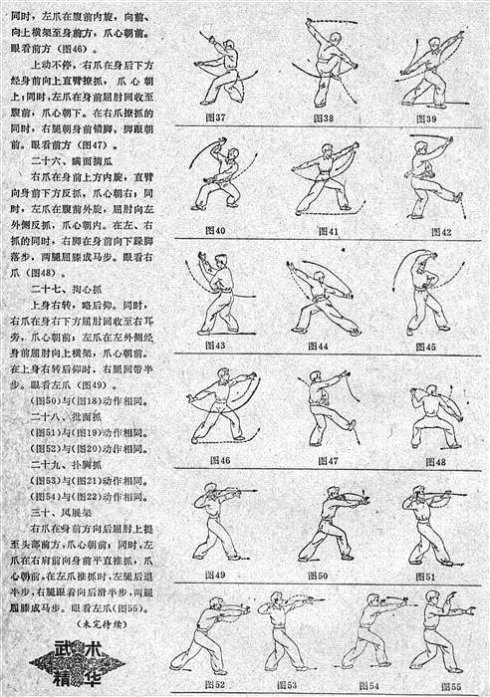 同时，左爪在腹前内旋，向前、
向上横架至身前方，爪心朝前。
眼看前方（图46）。
上动不停，右爪在身后下方
经身前向上直臂撩抓，爪心朝
上；同时，左爪在身前屈肘回收至
腹前，爪心朝下。在右爪撩抓的
同时，右腿朝身前错脚，脚跟朝
前。眼看前方（图47）。
二十六、瞒面摘瓜
右爪在身前上方内旋，直臂
向身前下方反抓，爪心朝右；同
时，左爪在腹前外旋，屈肘向左
外侧反抓，爪心朝内。在左、右
抓的同时，右脚在身前向下跺脚
落步，两腿屈膝成马步。眼看右
爪（图48）。
二十七、掏心抓
上身右转，略后仰。同时，
右爪在身右下方屈肘回收至右耳
旁，爪心朝前；左爪在左外侧经
身前屈肘向上横架，爪心朝前。
在上身右转后仰时，右腿回带半
步。眼看左爪（图49）。
（图50）与（图18）动作相同。
二十八、批面抓
（图51）与（图19）动作相同。
（图52）与（图20）动作相同。
二十九、扑胸抓
（图53）与（图21）动作相同。
（图54）与（图22）动作相同。
三十、风展架
右爪在身前方向后屈肘上提
至头部前方，爪心朝前；同时，左
爪在右肩前向身前平直推抓，爪
心朝前，在左爪推抓时，左腿后退
半步，右腿跟着向后滑半步，两腿
屈膝成马步。眼看左爪（图55）。
（未完待续）
武术
精华
图37 图38 图39
图40 图41 图42
图43 图44 图45
图46 图47 图48
图49 图50 图51
图52 图53 图54 图55